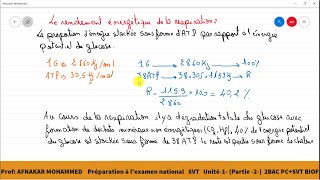 Le rendement énergétique de la respiration:
La proportion d'énergie stockée sous forme d'ATP par rapport à l'énergie
potentiel du glucose.
1G = 2860 Kj/mol
ATP = 30,5 Kj/mol
1G → 2860 Kj → 100%
38ATP → 38.30,5=1159 Kj → R
R = 1159 / 2860 × 100 = 40,2 %
Au cours de la respiration il y a dégradation totale du glucose avec
formation de déchets minéraux non énergétiques (CO2, H2O), 40% de l'énergie potentiel
du glucose est stockée sous forme de l'ATP le reste est perdu sous forme de chaleur
Prof: AFNAKAR MOHAMMED Préparation à l'examen national SVT Unité-1- (Partie -2-) 2BAC PC+SVT BIOF